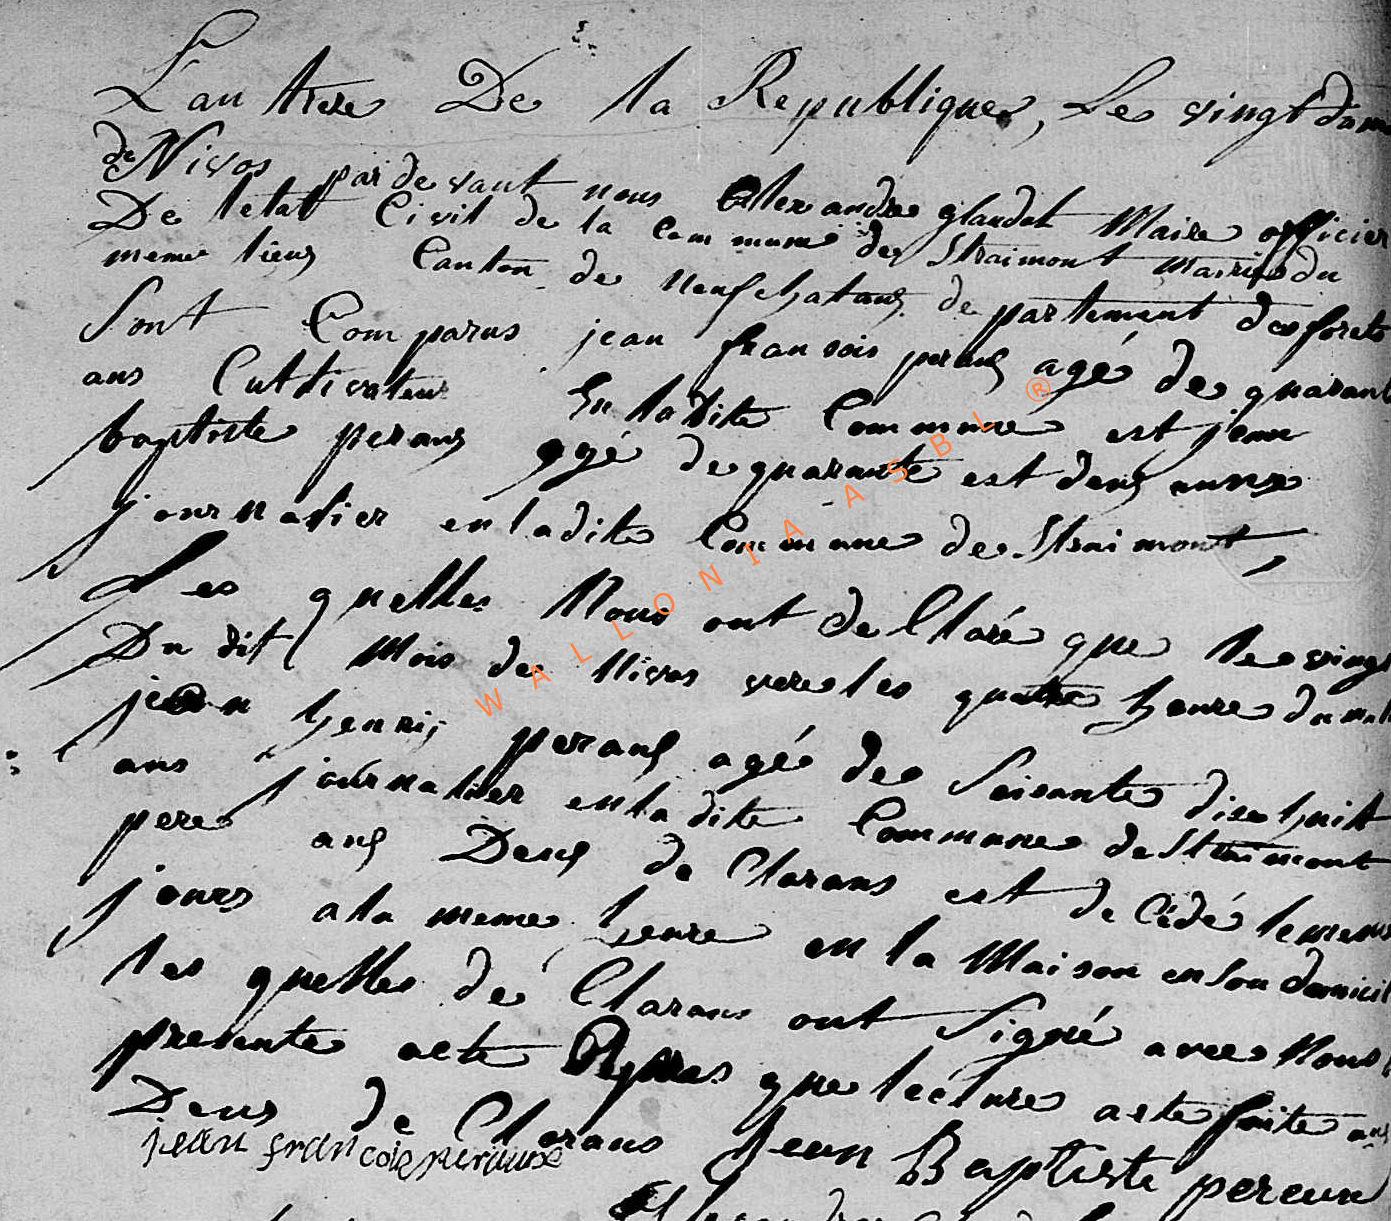 L'an treze De la Republique, Le vingt du m
de Nivos par de vant nous Alexandre glaudot Maire officier
De letat Civil de la Commune de Straimont mairie du
meme lieux Canton de neufchataux departement des forets
Sont Comparus jean fransois peraux agé de quarant
ans Cultivateur En ladite Commune est jean
baptiste peraux agé de quarante est deux anns
journalier en ladite Commune de Straimont,
Les quelles Nous ont de Claré que le vingt
Du dit Mois de Nivos vere les quatre heure du mat
jean henrij peraux agé de Soisante dixe huit
ans journalier en la dite Commune de Straimont
pere aux Deux de Clarans est de Cédé le meme
jours a la meme heure en la Maison en Son domicil
les quelles dé Clarans ont Signé avec Nous
presente acte Apres que lecture aete faite aux
Deux de Clarans Jean Baptiste pereux
jean francois peraux
WALLONIA ASBL ®